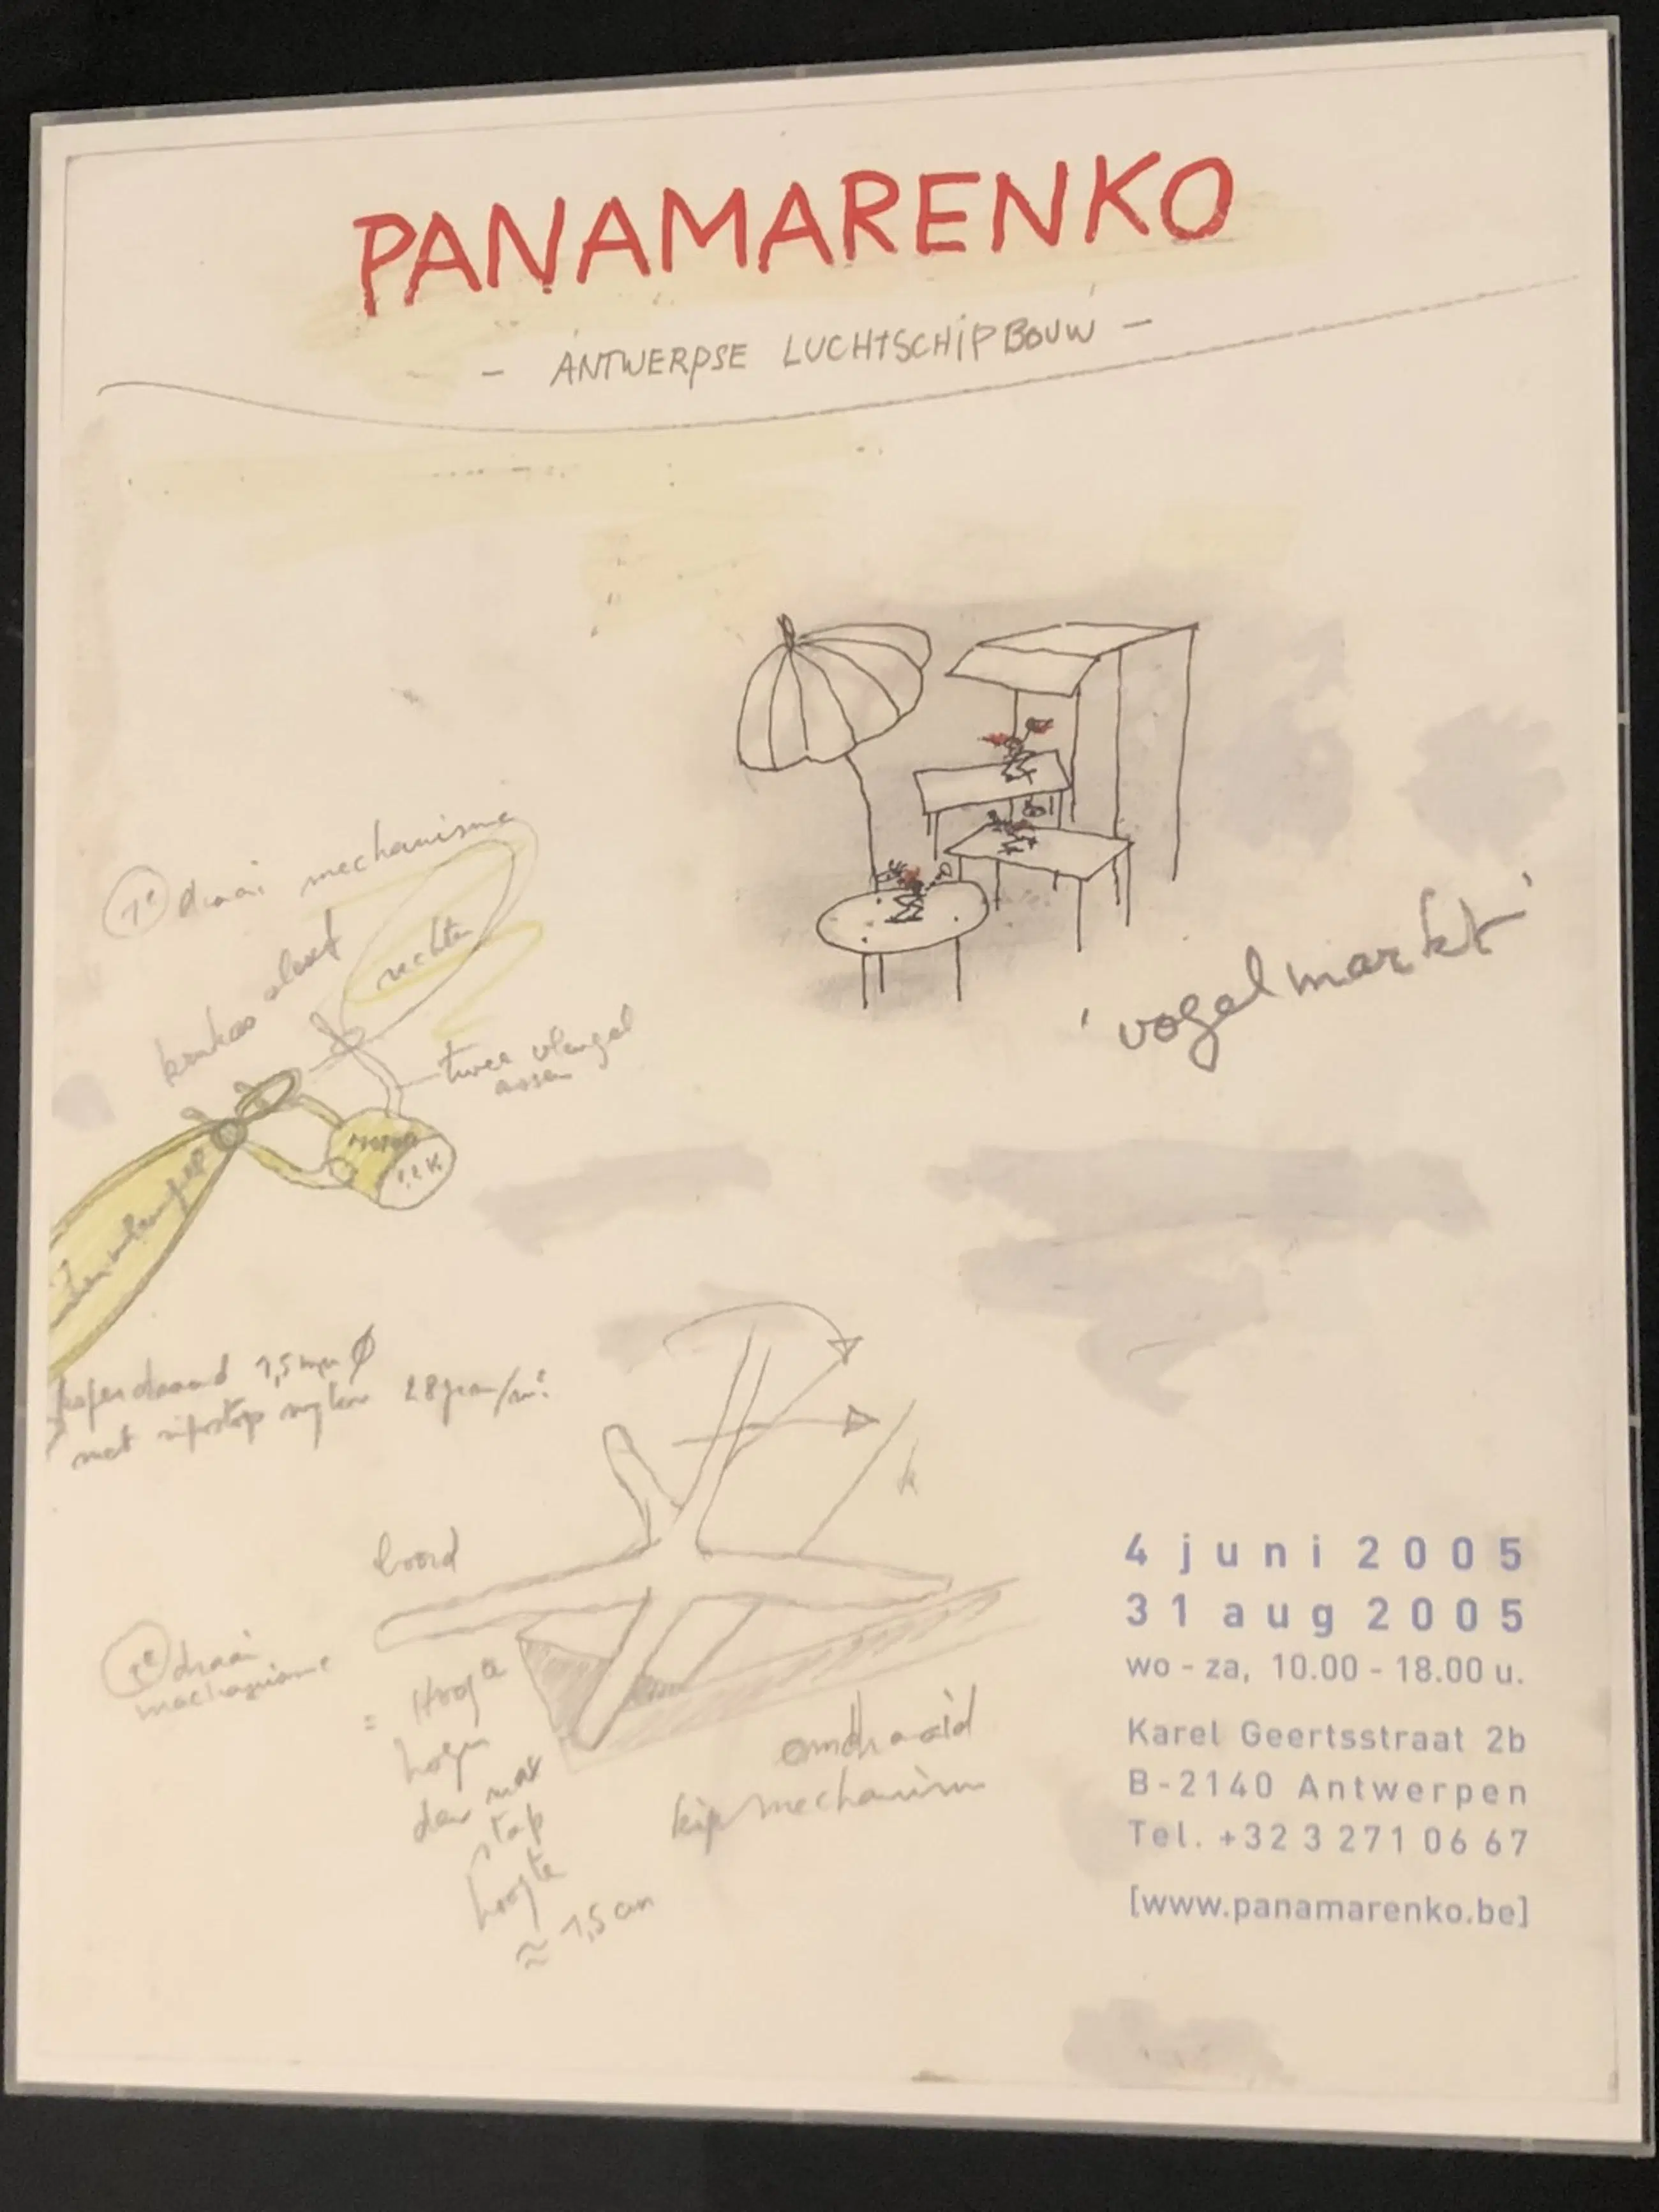 PANAMARENKO
- ANTWERPSE LUCHTSCHIPBOUW -
1e draai mechanisme
krukas
rechter
twee vleugel
assen
'vogelmarkt'
1,5 mm Ø
met ripstop nylon 28 gram/m²
boord
draai
mechanisme
= Hoge
dan max
tap
hoogte
≈ 1,5 cm
omdraaid
kipmechanism
4 juni 2005
31 aug 2005
wo - za, 10.00 - 18.00 u.
Karel Geertsstraat 2b
B-2140 Antwerpen
Tel. +32 3 271 06 67
[www.panamarenko.be]